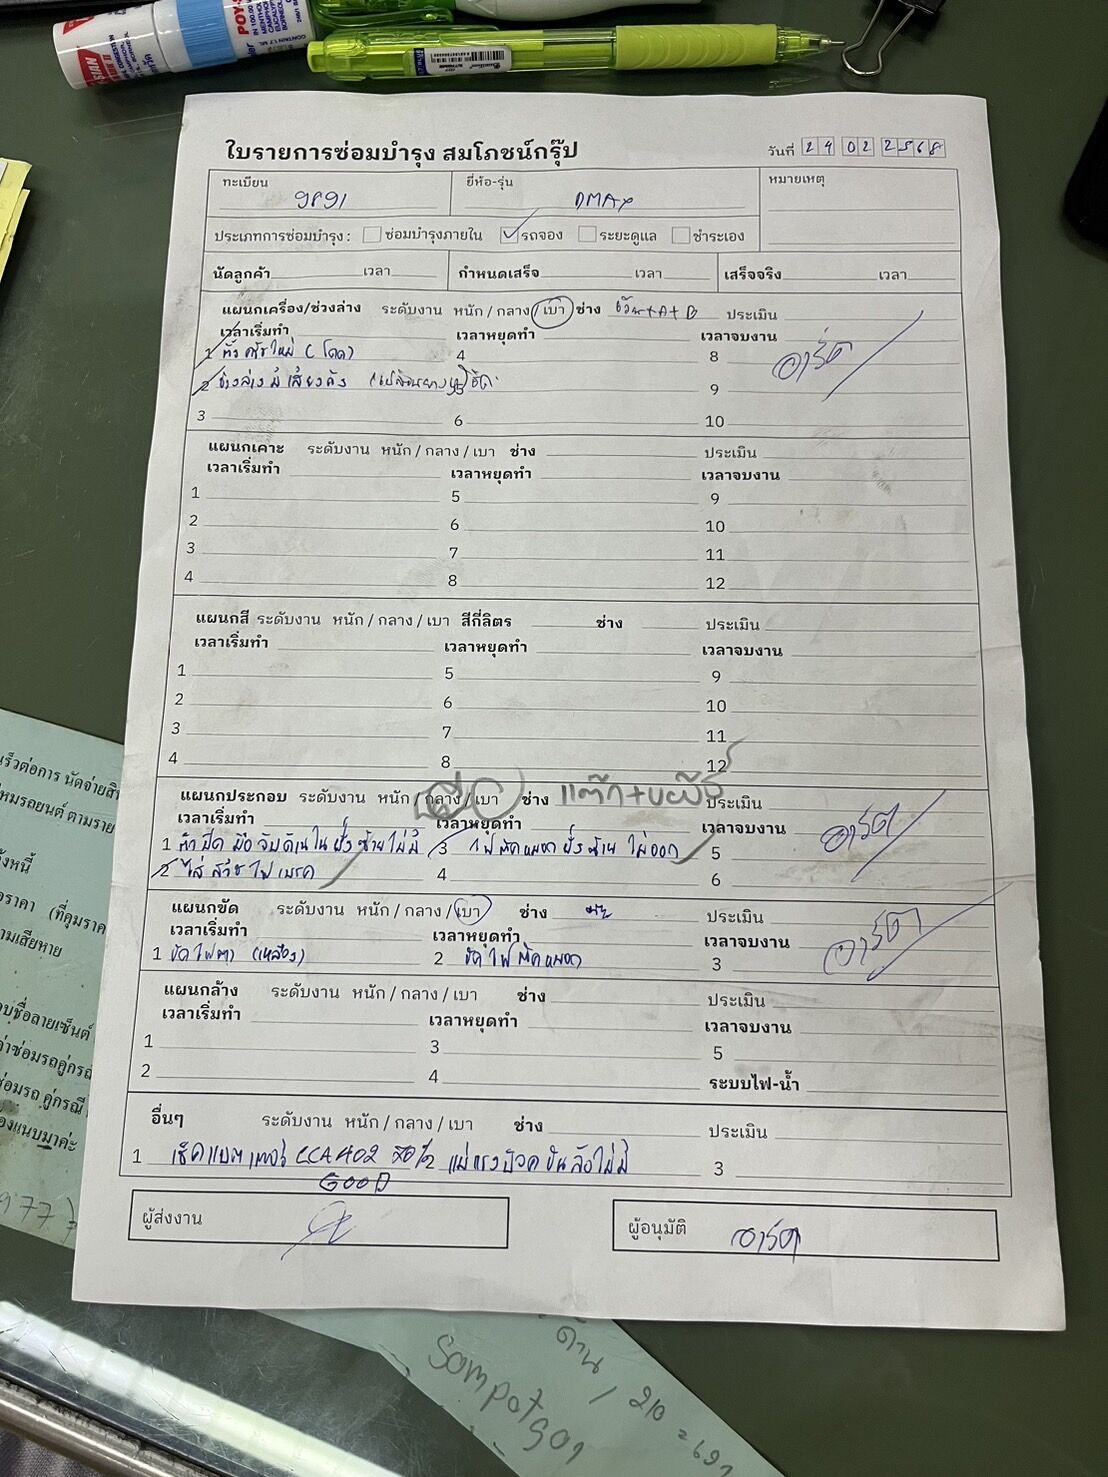 ใบรายการซ่อมบำรุง สมโภชน์กรุ๊ป
วันที่ 24 02 2568
ทะเบียน 9891
ยี่ห้อ-รุ่น DMAX
หมายเหตุ
ประเภทการซ่อมบำรุง : ซ่อมบำรุงภายใน รถจอง ระยะดูแล ชำระเอง
นัดลูกค้า เวลา กำหนดเสร็จ เวลา เสร็จจริง เวลา
แผนกเครื่อง/ช่วงล่าง ระดับงาน หนัก / กลาง / เบา ช่าง +A+B ประเมิน
เวลาเริ่มทำ เวลาหยุดทำ เวลาจบงาน
1 ตั้งครัชใหม่ (โดด) 4 8
2 ช่วงล่างมีเสียงดัง 5 9
3 6 10
อาร์ต
แผนกเคาะ ระดับงาน หนัก / กลาง / เบา ช่าง ประเมิน
เวลาเริ่มทำ เวลาหยุดทำ เวลาจบงาน
1 5 9
2 6 10
3 7 11
4 8 12
แผนกสี ระดับงาน หนัก / กลาง / เบา สีกี่ลิตร ช่าง ประเมิน
เวลาเริ่มทำ เวลาหยุดทำ เวลาจบงาน
1 5 9
2 6 10
3 7 11
4 8 12
แผนกประกอบ ระดับงาน หนัก / กลาง / เบา ช่าง ประเมิน
เวลาเริ่มทำ เวลาหยุดทำ เวลาจบงาน
1 ตัวปิดมือจับด้านในฝั่งซ้ายไม่มี 3 ไฟตัดหมอกฝั่งซ้ายไม่ออก 5
2 ใส่สวิชไฟเบรค 4 6
อาร์ต
แผนกขัด ระดับงาน หนัก / กลาง / เบา ช่าง ประเมิน
เวลาเริ่มทำ เวลาหยุดทำ เวลาจบงาน
1 ขัดไฟตา (เหลือง) 2 ขัดไฟตัดหมอก 3
อาร์ต
แผนกล้าง ระดับงาน หนัก / กลาง / เบา ช่าง ประเมิน
เวลาเริ่มทำ เวลาหยุดทำ เวลาจบงาน
1 3 5
2 4 ระบบไฟ-น้ำ
อื่นๆ ระดับงาน หนัก / กลาง / เบา ช่าง ประเมิน
1 เช็คแบตเตอรี่ CCA 402 แม่แรงบล็อคขันล้อไม่มี 3
GOOD
ผู้ส่งงาน
ผู้อนุมัติ อาร์ต
Sompotgor
210 = 697